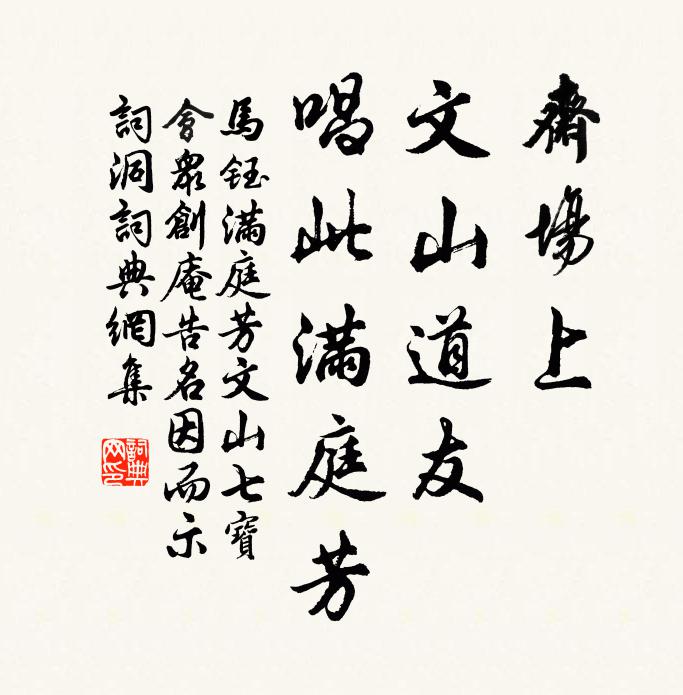 齋場上
文山道友
唱此滿庭芳
馬鈺滿庭芳文山七寶
會衆創庵告名因而示
詞洞詞典網集
詞典
网印